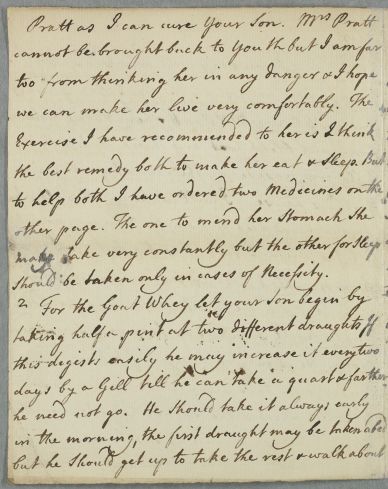 Pratt as I can cure Your Son. Mrs Pratt
cannot be brought back to Youth but I am far
too from thinking her in any Danger & I hope
we can make her live very comfortably. The
Exercise I have recommended to her is I think
the best remedy both to make her eat & Sleep. But
to help both I have ordered two Medicines on the
other page. The one to mend her Stomach She
may take very constantly but the other for Sleep
Should be taken only in cases of Necessity.
2 For the Goat Whey let your Son begin by
taking half a pint at two different draughts If
this digests easily he may increase it every two
days by a Gill till he can take a quart & farther
he need not go. He Should take it always early
in the morning, the first draught may be taken abed
but he Should get up to take the rest & walk about